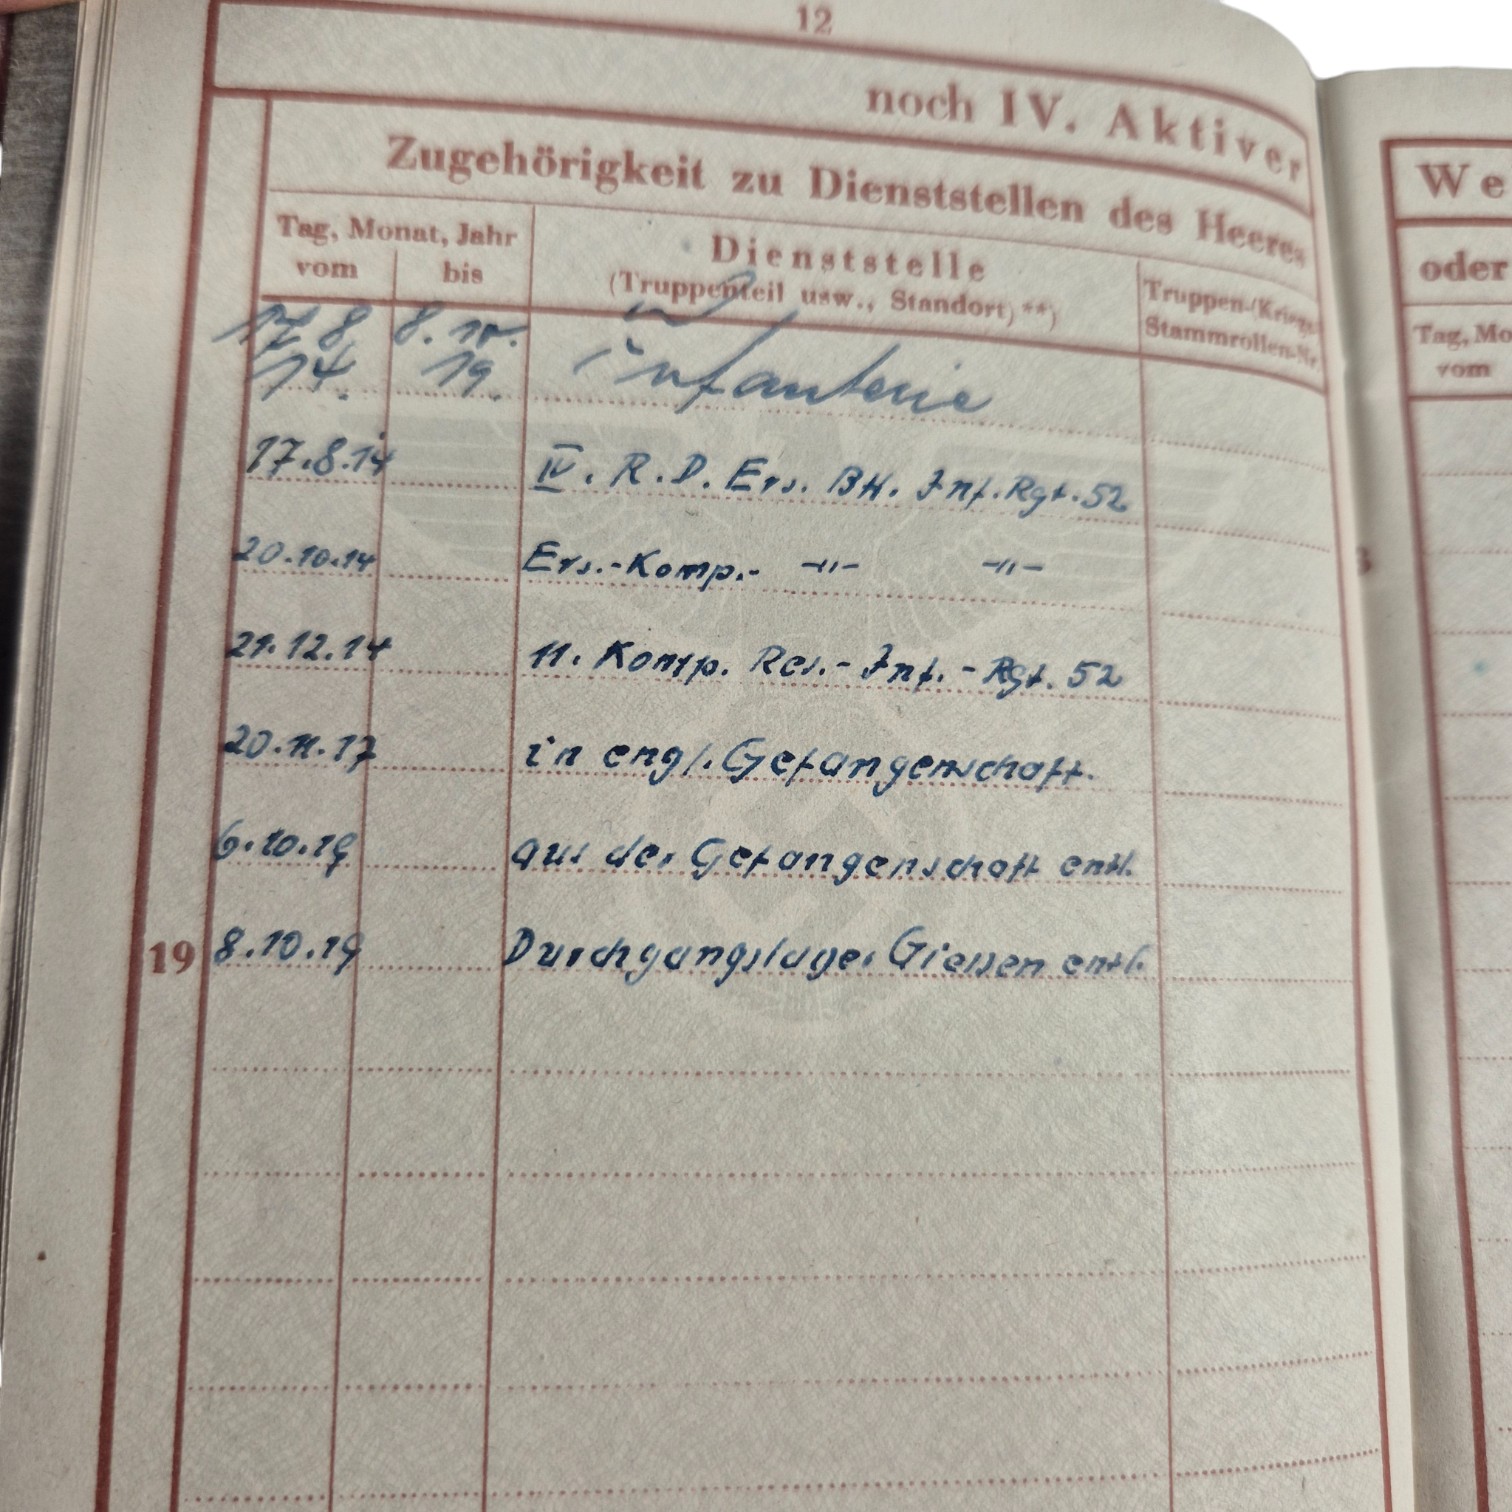 12
noch IV. Aktiver
Zugehörigkeit zu Dienststellen des Heeres
Tag, Monat, Jahr
vom bis
Dienststelle
(Truppenteil usw., Standort) **)
Truppen-(Kriegs-
Stammrollen-Nr.
17.8. 8.10.
14. 19. Infanterie
17.8.14 IV. R.D. Ers. Btl. Inf. Rgt. 52
20.10.14 Ers.-Komp.- -"- -"-
21.12.14 11. Komp. Res.-Inf.-Rgt. 52
20.11.17 in engl. Gefangenschaft.
6.10.19 aus der Gefangenschaft entl.
19 8.10.19 Durchgangslager Giessen entl.
We
oder
Tag, Mo
vom